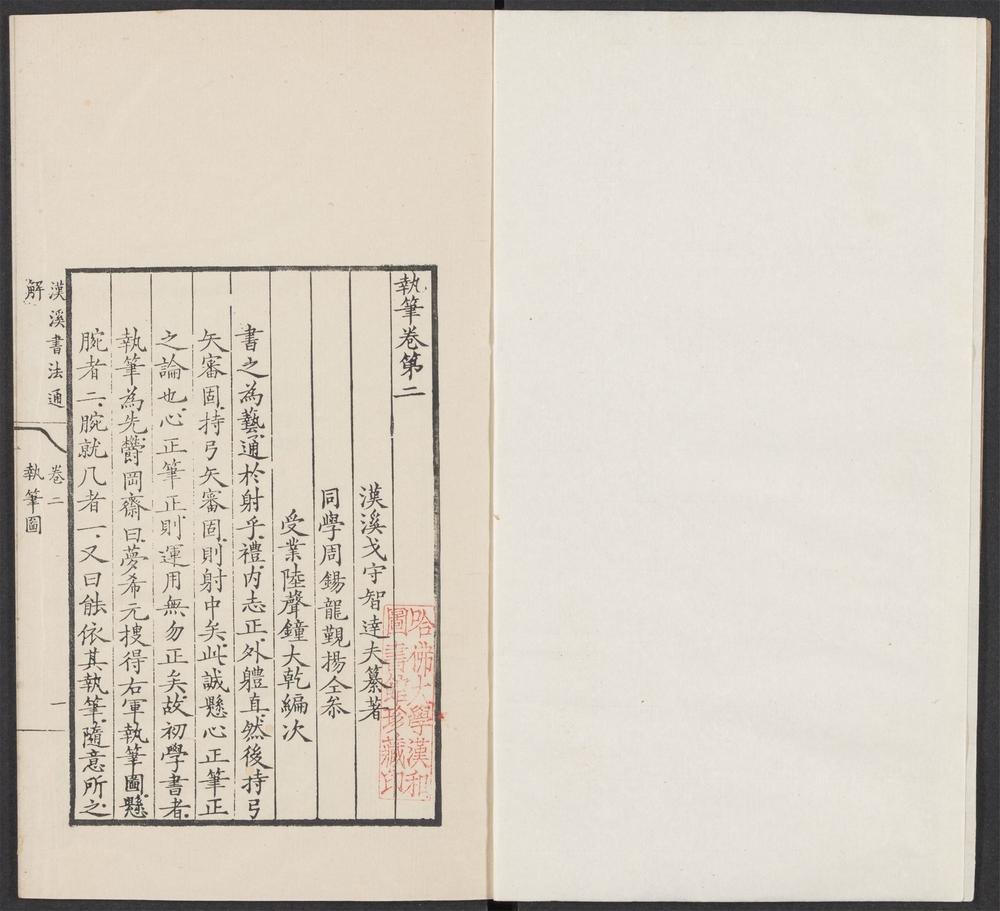 執筆卷第二
漢溪戈守智達夫纂著
同學周錫龍覲揚仝叅
受業陸聲鐘大乾編次
書之為藝通於射乎禮内志正外體直然後持弓
矢審固持弓矢審固則射中矣此誠懸心正筆正
之論也心正筆正則運用無勿正矣故初學書者
執筆為先鬱岡齋曰夢希元搜得右軍執筆圖懸
腕者二腕就几者一又曰能依其執筆隨意所之
漢溪書法通解
卷二
執筆圖
一
哈佛大學漢和圖書館珍藏印